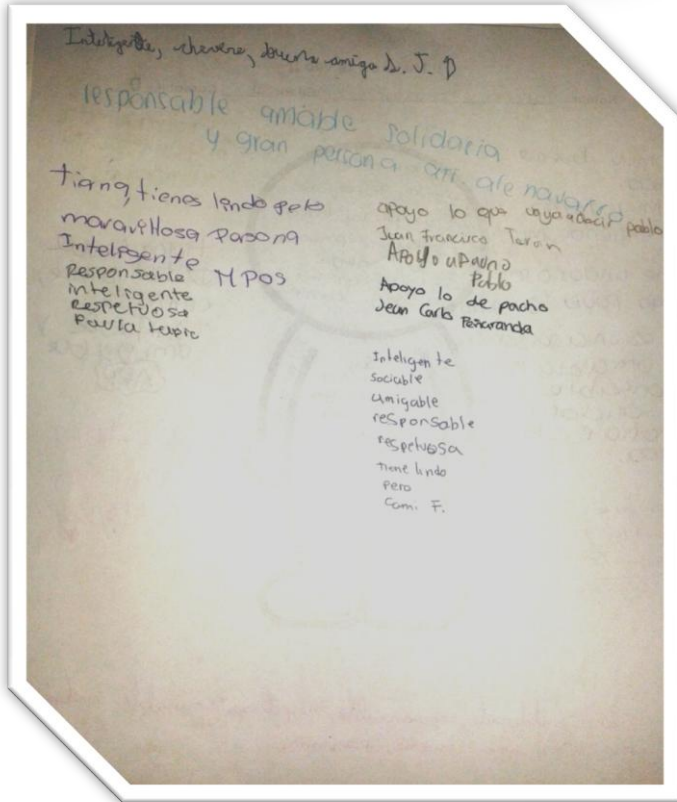 Inteligente, chevere, buena amiga S. J. D
responsable amable solidaria
y gran persona att. ale navarro
tiana, tienes lindo pelo
maravillosa Pasona
Inteligente
MPOS
Responsable
inteligente
Respetuosa
Paula
apoyo lo que vaya a decir pablo
Juan Francisco Teran
Apoyo a Pacho
Pablo
Apoyo lo de pacho
Jean Carlo Peñaranda
Inteligente
sociable
amigable
responsable
respetuosa
tiene lindo
pero
Cami F.